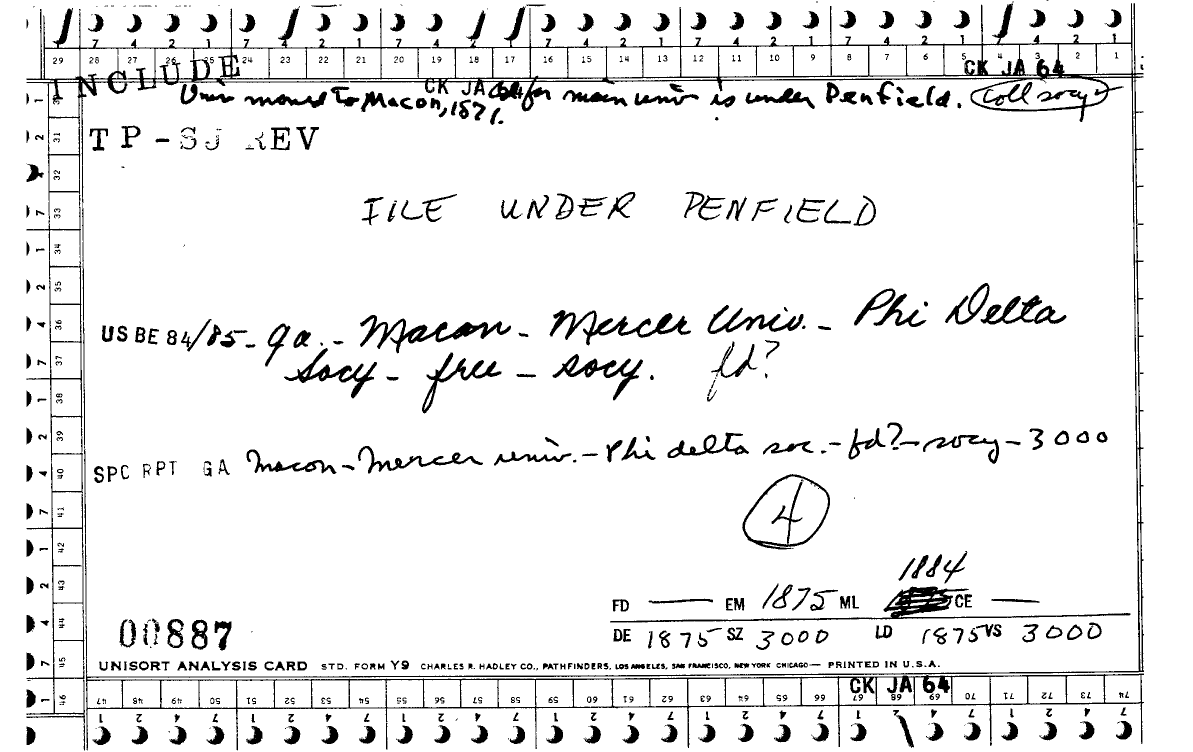 7 4 2 1 7 4 2 1 7 4 2 1 7 4 2 1 7 4 2 1 7 4 2 1 7 4 2 1
29 28 27 26 25 24 23 22 21 20 19 18 17 16 15 14 13 12 11 10 9 8 7 6 5 4 3 2 1
CK JA 64
INCLUDE
CK JA 64
Univ moved to Macon, 1871. for main univ is under Penfield. Coll socy
TP-SJ REV
FILE UNDER PENFIELD
US BE 84/85 - Ga. - Macon - Mercer Univ. - Phi Delta
Socy - free - socy. fd?
SPC RPT GA Macon - Mercer univ. - Phi delta soc. - fd? - socy - 3000
4
1884
FD — EM 1875 ML CE —
DE 1875 SZ 3000 LD 1875 VS 3000
00887
UNISORT ANALYSIS CARD STD. FORM Y9 CHARLES R. HADLEY CO., PATHFINDERS, LOS ANGELES, SAN FRANCISCO, NEW YORK CHICAGO — PRINTED IN U.S.A.
CK JA 64
47 48 49 50 51 52 53 54 55 56 57 58 59 60 61 62 63 64 65 66 67 68 69 70 71 72 73 74
1 2 4 7 1 2 4 7 1 2 4 7 1 2 4 7 1 2 4 7 1 2 4 7 1 2 4 7